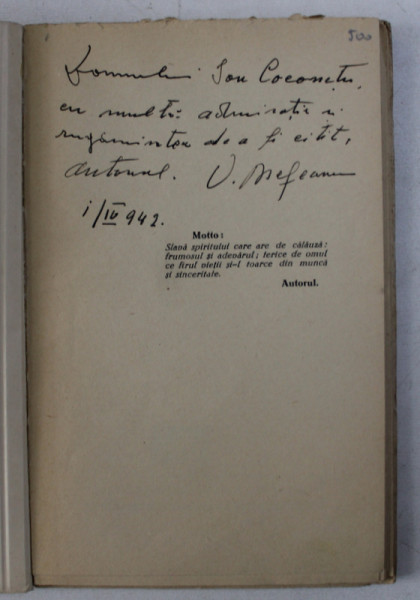 500
Domnului Ion
cu multă admirație și
rugămintea de a fi citit,
autorul. V.
1/IV 942.
Motto:
Slavă spiritului care are de călăuză:
frumosul și adevărul; ferice de omul
ce firul vieții și-l toarce din muncă
și sinceritate.
Autorul.